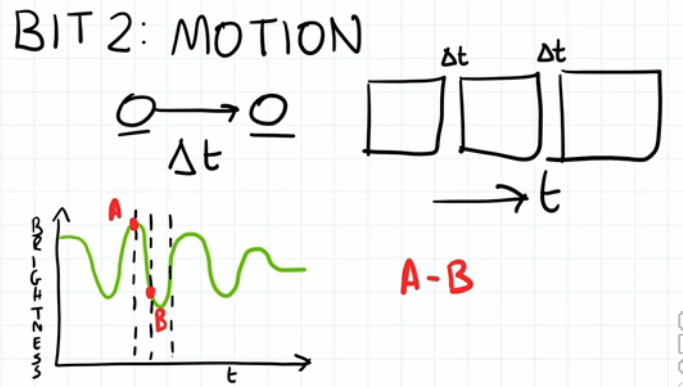 BIT 2: MOTION
Δt Δt
Δt
t
A
BRIGHTNESS
B
A-B
t